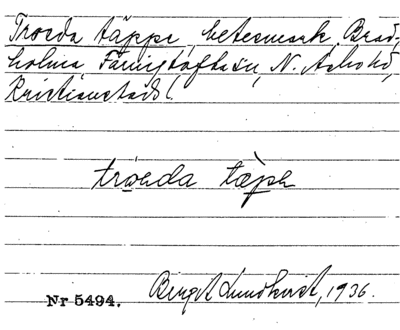 Troeda täppe, betesmark, Brad-
holma Färingtofta sn, N. Åsbo hd,
Kristianstads l.
troeda tæpe
Nr 5494. Bengt Lundkvist, 1936.